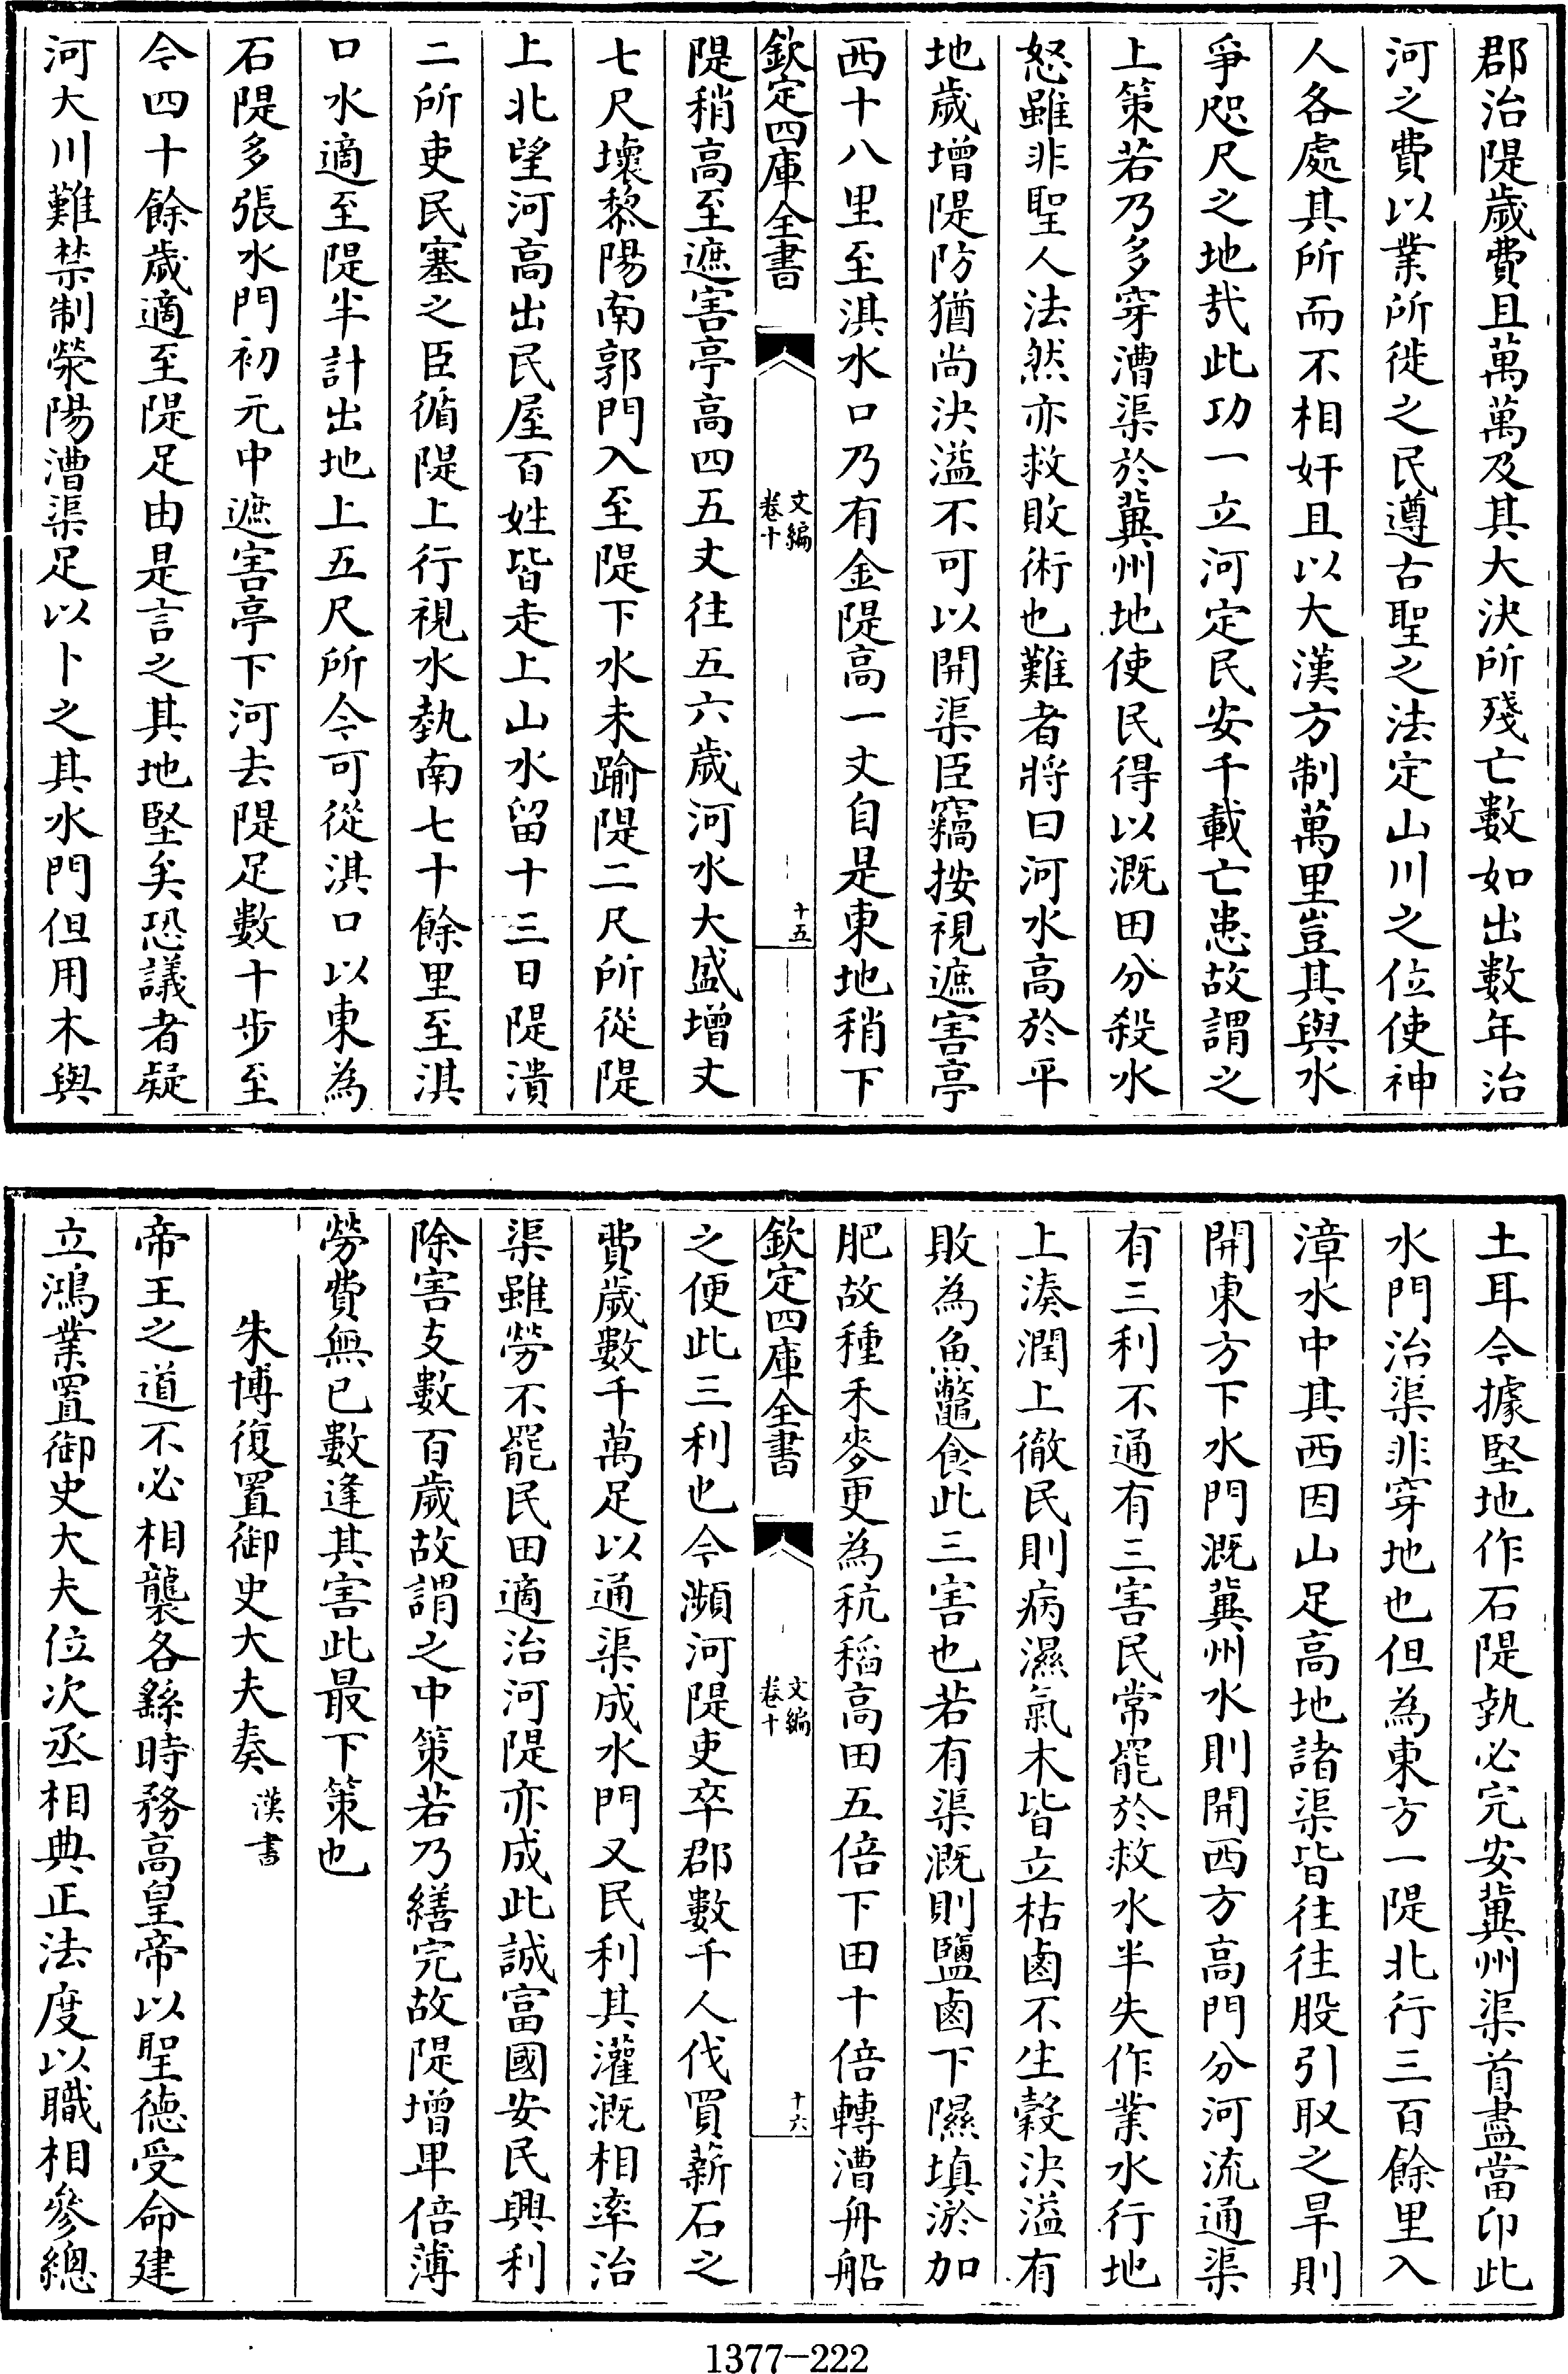 郡治隄歲費且萬萬及其大決所殘亡數如出數年治
河之費以業所徙之民遵古聖之法定山川之位使神
人各處其所而不相奸且以大漢方制萬里豈其與水
爭咫尺之地哉此功一立河定民安千載亡患故謂之
上策若乃多穿漕渠於冀州地使民得以溉田分殺水
怒雖非聖人法然亦救敗術也難者將曰河水高於平
地歲增隄防猶尚決溢不可以開渠臣竊按視遮害亭
西十八里至淇水口乃有金隄高一丈自是東地稍下
欽定四庫全書
文編
卷十
十五
隄稍高至遮害亭高四五丈往五六歲河水大盛增丈
七尺壞黎陽南郭門入至隄下水未踰隄二尺所從隄
上北望河高出民屋百姓皆走上山水留十三日隄潰
二所吏民塞之臣循隄上行視水埶南七十餘里至淇
口水適至隄半計出地上五尺所今可從淇口以東為
石隄多張水門初元中遮害亭下河去隄足數十步至
今四十餘歲適至隄足由是言之其地堅矣恐議者疑
河大川難禁制滎陽漕渠足以卜之其水門但用木與
土耳今據堅地作石隄埶必完安冀州渠首盡當卬此
水門治渠非穿地也但為東方一隄北行三百餘里入
漳水中其西因山足高地諸渠皆往往股引取之旱則
開東方下水門溉冀州水則開西方高門分河流通渠
有三利不通有三害民常罷於救水半失作業水行地
上湊潤上徹民則病濕氣木皆立枯鹵不生穀決溢有
敗為魚鼈食此三害也若有渠溉則鹽鹵下隰填淤加
肥故種禾麥更為秔稻高田五倍下田十倍轉漕舟船
欽定四庫全書
文編
卷十
十六
之便此三利也今瀕河隄吏卒郡數千人伐買薪石之
費歲數千萬足以通渠成水門又民利其灌溉相率治
渠雖勞不罷民田適治河隄亦成此誠富國安民興利
除害支數百歲故謂之中策若乃繕完故隄增卑倍薄
勞費無已數逢其害此最下策也
朱博復置御史大夫奏 漢書
帝王之道不必相襲各繇時務高皇帝以聖德受命建
立鴻業置御史大夫位次丞相典正法度以職相參總
1377-222